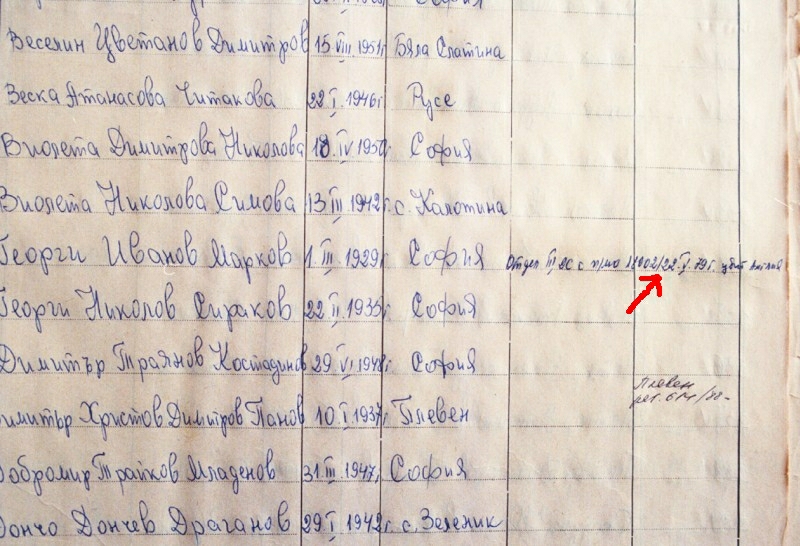 София
Веселин Цветанов Димитров 15.VIII.1951г. Бяла Слатина
Веска Атанасова Читакова 22.I.1946г. Русе
Виолета Димитрова Николова 18.IV.1950г. София
Виолета Николова Симова 13.III.1942г. с. Калотина
Георги Иванов Марков 1.III.1929г. София Отдел III 22.V.79г.
Георги Николов Сираков 22.II.1935г. София
Димитър Траянов Костадинов 29.VI.1948г. София
Плевен
имитър Христов Димитров Панов 10.I.1937г. Плевен
обромир Трайков Младенов 31.III.1947г. София
ончо Дончев Драганов 29.I.1942г. с. Зеленик